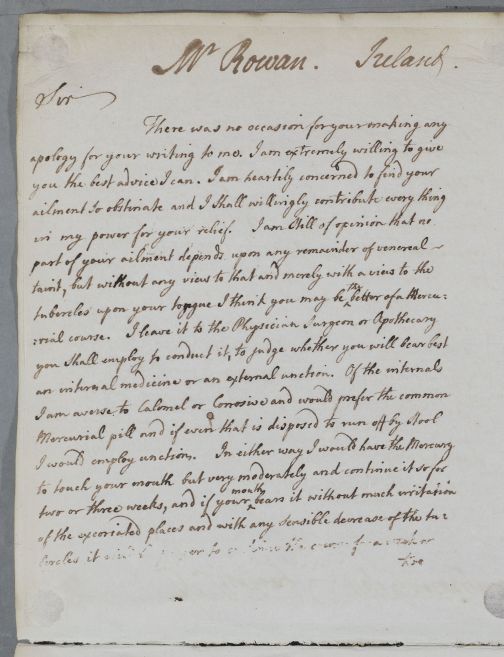 Mr Rowan. Ireland.
Sir
There was no occasion for your making any
apology for your writing to me. I am extremely willing to give
you the best advice I can. I am heartily concerned to find your
ailment so obstinate and I shall willingly contribute every thing
in my power for your relief. I am still of opinion that no
part of your ailment depends upon any remainder of venereal
taint, but without any view to that and merely with a view to the
tubercles upon your tongue I think you may be the better of a Mercu-
-rial course. I leave it to the Physician Surgeon or Apothecary
you shall employ to conduct it, to judge whether you will bear best
an internal medicine or an external unction. Of the internals
I am averse to Calomel or Corrosive and would prefer the common
Mercurial pill and if even that is disposed to run off by stool
I would employ unction. In either way I would have the Mercury
to touch your mouth but very moderately and continue it so for
two or three weeks, and if your mouth bears it without much irritation
of the excoriated places and with any sensible decrease of the tu-
bercles it